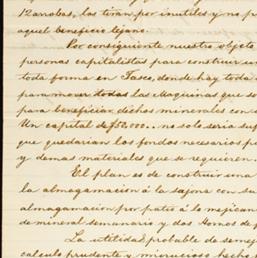 12 arrobas, las tiran por inutiles y no p
aquel beneficio lejano.
Por consiguiente nuestro objeto
personas capitalistas para construir un
toda forma en Tasco, donde hay toda
para mover todas las Maquinas que so
para beneficiar dichos minerales con
Un capital de $52,000.. no solo seria suf
que quedarian los fondos necesarios p
y demas materiales que se requieren.
El plan es de construir una
la almagamación á la sajona con su
almagamación por patio á la mejican
de mineral semanario y dos Hornos de f
La utilidad probable de seme
calculo prudente y minucioso hecho